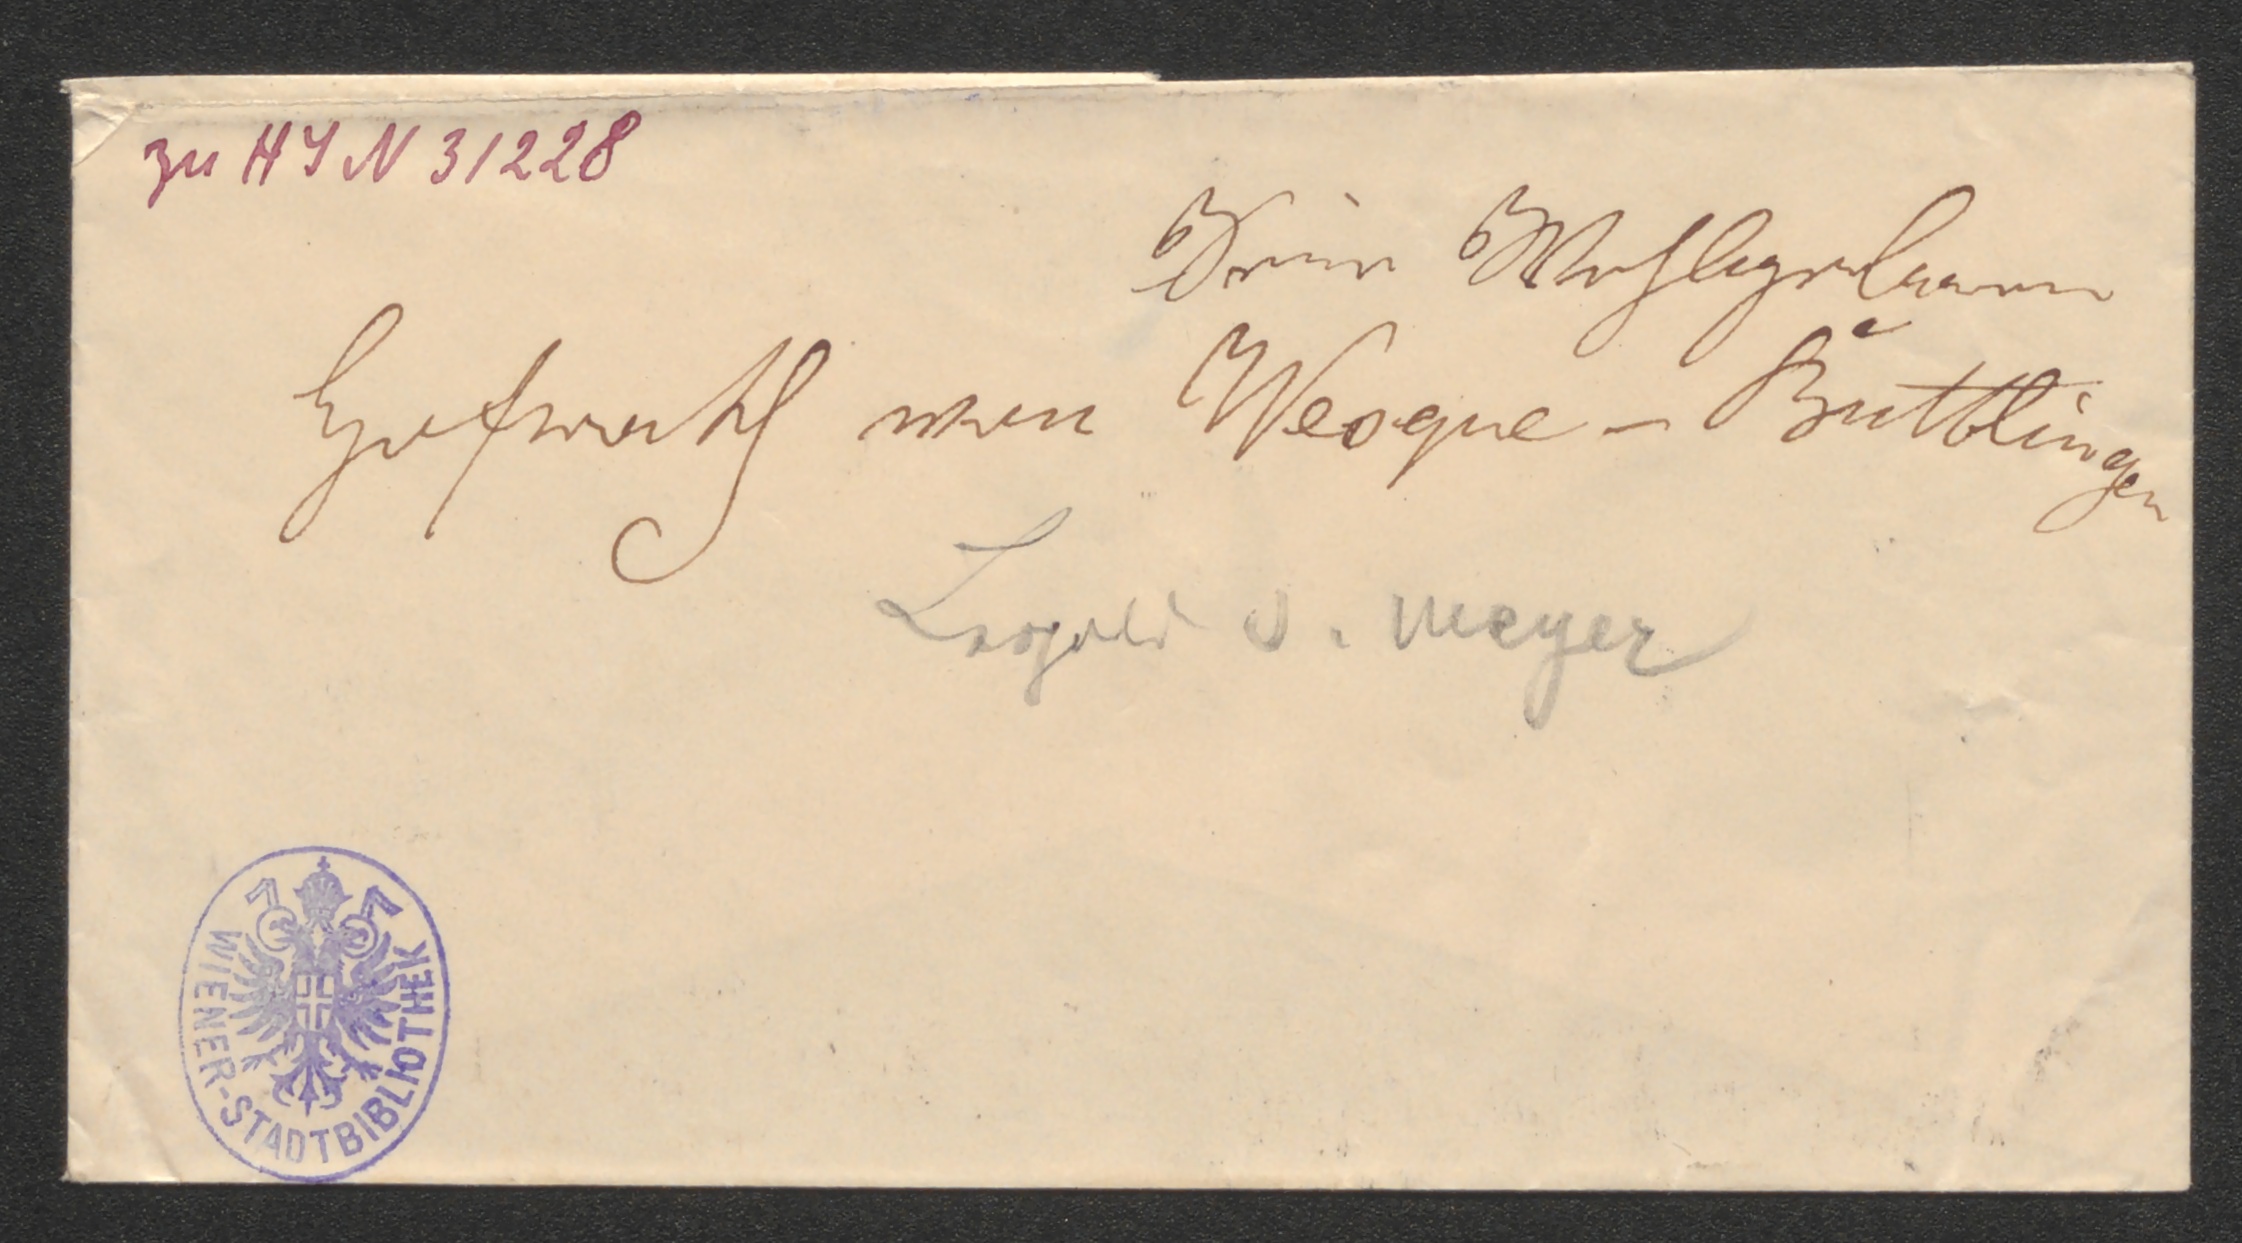 zu HIN 31228
Seiner Wohlgeboren
Hofrath von Vesque-Büttlingen
Leopold v. Meyer
WIENER-STADTBIBLIOTHEK